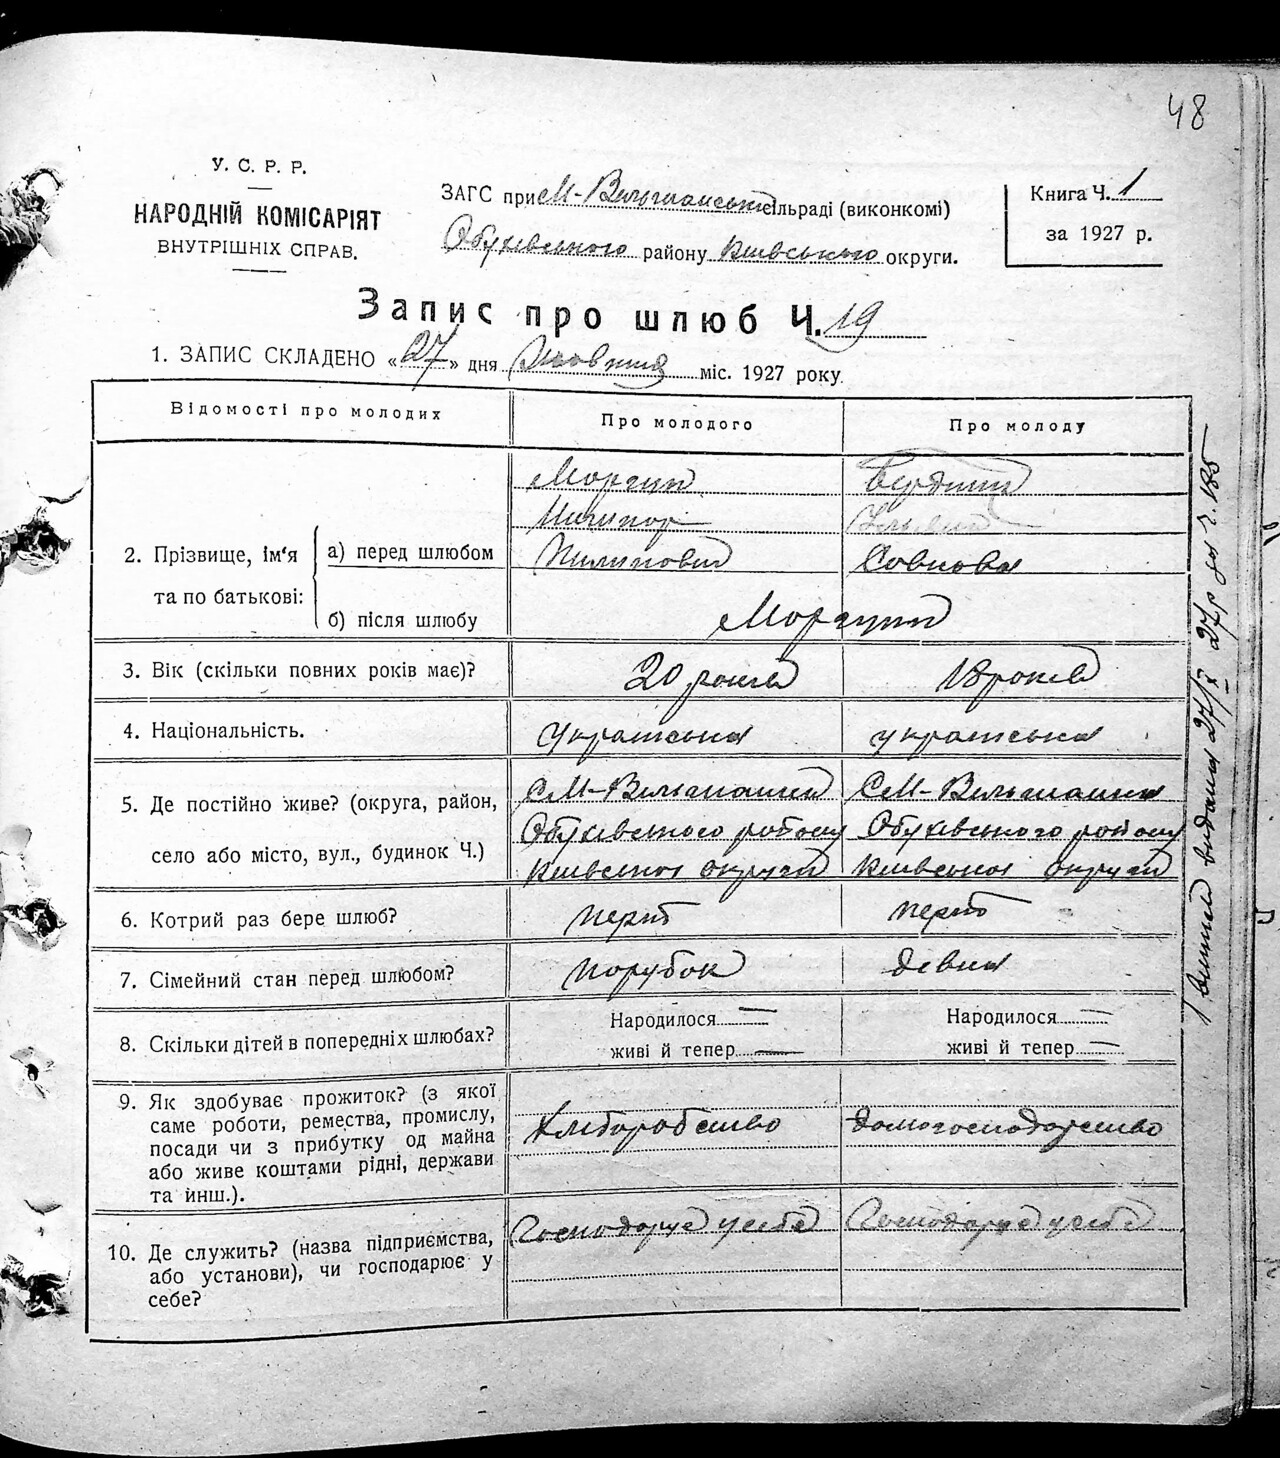 48
У. С. Р. Р.
НАРОДНІЙ КОМІСАРІЯТ
ВНУТРІШНІХ СПРАВ.
ЗАГС при М-Вільшанські сільраді (виконкомі)
Обухівського району Київського округи.
Книга Ч. 1
за 1927 р.
Запис про шлюб Ч. 19
1. ЗАПИС СКЛАДЕНО «27» дня Жовтня міс. 1927 року
Відомості про молодих
Про молодого
Про молоду
2. Прізвище, ім'я
та по батькові:
а) перед шлюбом
б) після шлюбу
Моргун
Ничипор
Пилипович
Савківна
Моргуни
3. Вік (скільки повних років має)?
20 років
18 років
4. Національність.
українська
українська
5. Де постійно живе? (округа, район,
село або місто, вул., будинок Ч.)
С М-Вільшанки
Обухівського району
Київської округи
С М-Вільшанка
Обухівського району
Київської округи
6. Котрий раз бере шлюб?
перш
перш
7. Сімейний стан перед шлюбом?
порубок
дівка
8. Скільки дітей в попередніх шлюбах?
Народилося —
живі й тепер —
Народилося —
живі й тепер —
9. Як здобуває прожиток? (з якої
саме роботи, ремества, промислу,
посади чи з прибутку од майна
або живе коштами рідні, держави
та йнш.).
Хліборобство
домогосподарство
10. Де служить? (назва підприємства,
або установи), чи господарює у
себе?
Господарує у себе
Господарує у себе
видана 27/X 27р за ч. 185